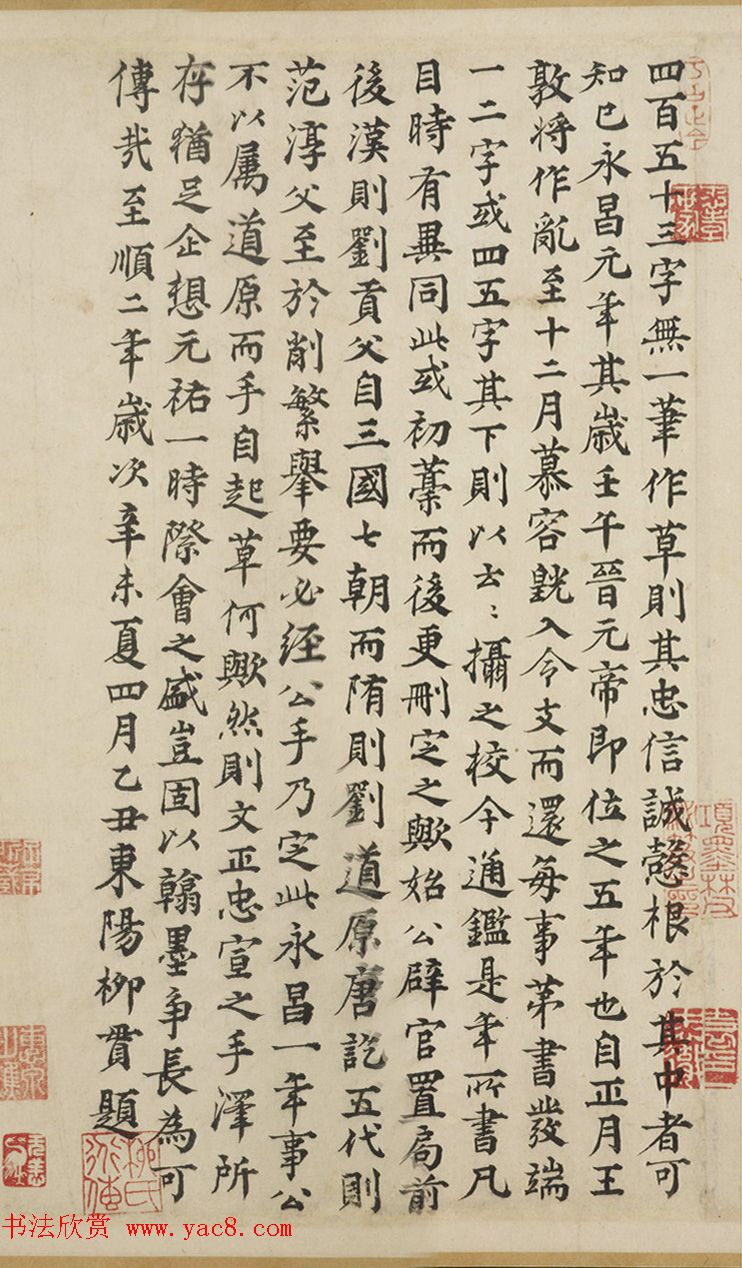 四百五十三字無一筆作草則其忠信誠慤根於其中者可
知已永昌元年其歲壬午晉元帝即位之五年也自正月王
敦將作亂至十二月慕容皝入令支而還每事第書發端
一二字或四五字其下則以云〻攝之校今通鑑是年所書凡
目時有異同此或初藁而後更刪定之歟始公辟官置局前
後漢則劉貢父自三國七朝而隋則劉道原唐訖五代則
范淳父至於削繁舉要必經公手乃定此永昌一年事公
不以属道原而手自起草何歟然則文正忠宣之手澤所
存猶足企想元祐一時際會之盛豈固以翰墨爭長為可
傳哉至順二年歲次辛未夏四月乙丑東陽柳貫題
柳氏
书法欣赏 www.yac8.com